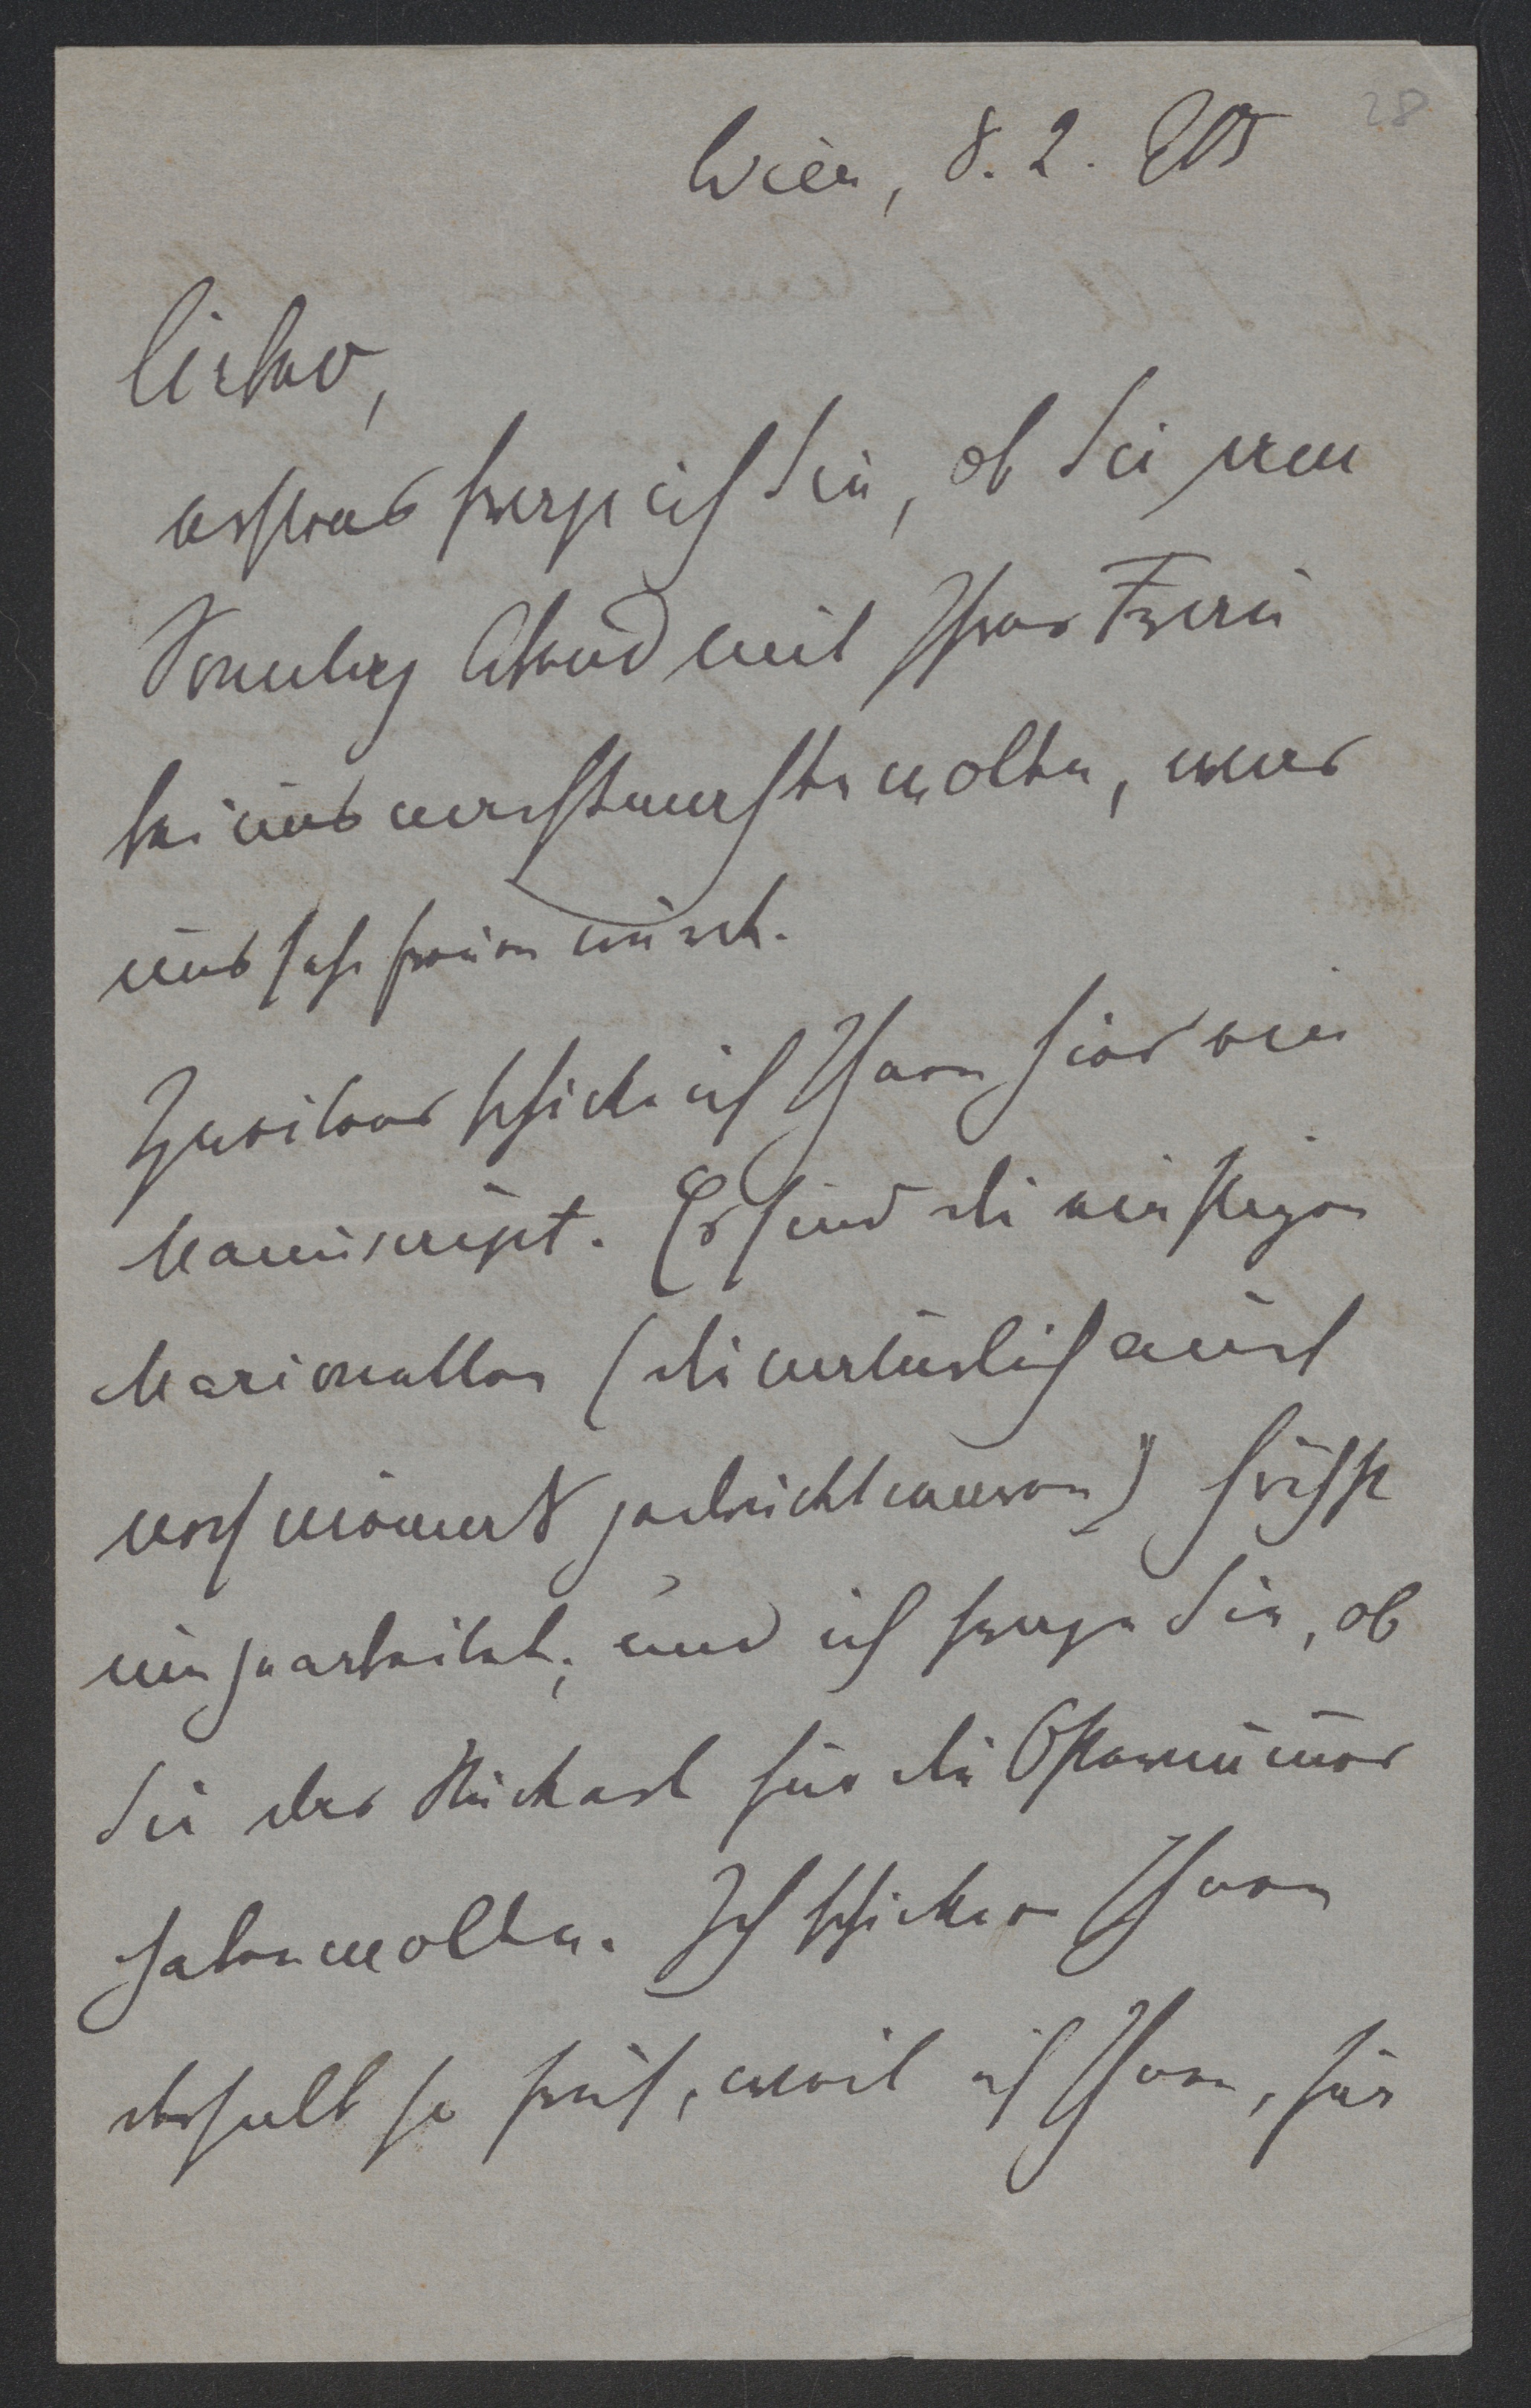 28
Wien, 8. 2. 905
lieber,
erstens frage ich Sie, ob Sie am
Sonntag Abend mit Ihrer Frau
bei uns nachtmahlen wollen, was
uns sehr freuen würde.
Zweitens schicke ich Ihnen hier ein
Manuscript. Es sind die einstigen
Marionetten (die natürlich auch
noch niemals gedruckt waren) frisch
umgearbeitet; und ich frage Sie, ob
Sie das Stückerl für die Osternummer
haben wollen. Ich schick es Ihnen
deshalb so früh, weil ich Ihnen, für